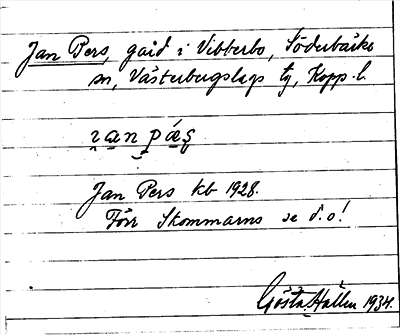 Jan Pers, gård i Vibberbo, Söderbärke
sn, Västerbergslags tg, Kopp. l.
Jan Pers kb 1928.
Förr Skommarns se d.o!
Gösta Hallen 1934.